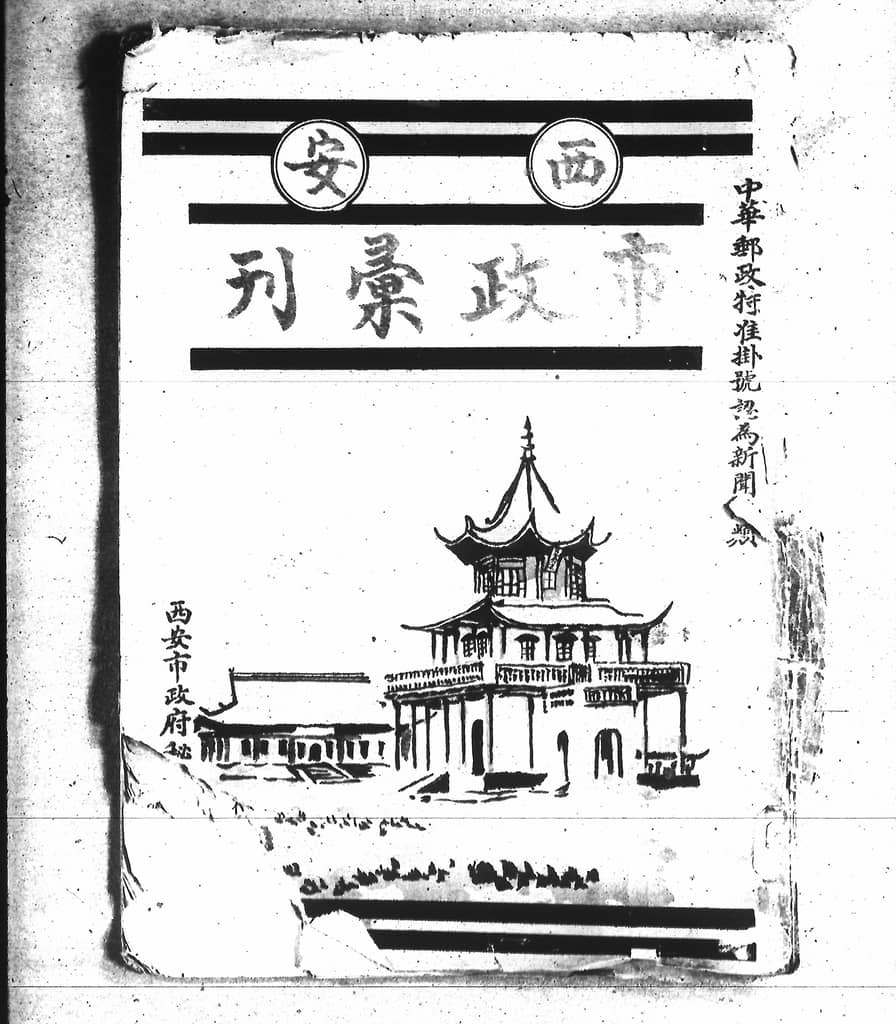 西安
市政彙刊
中華郵政特准掛號認為新聞
西安市政府秘